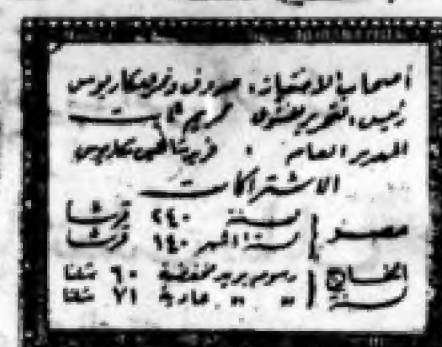 أصحاب الامتياز: صروف ونمر ومكاريوس
رئيس التحرير المسئول كريم ثابت
المدير العام : فريد شاهين مكاريوس
الاشتراكات
مصر { سنة ٢٤٠ قرشا
ستة أشهر ١٤٠ قرشا
الخارج { رسوم بريد مخفضة ٦٠ شلنا
سنة { " " عادية ٧١ شلنا